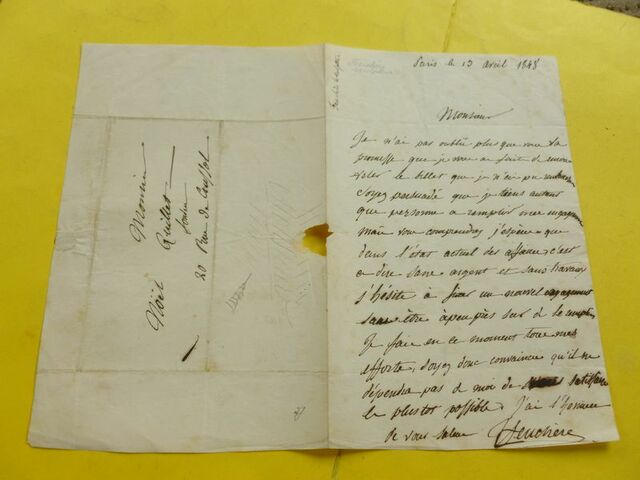 Paris le 13 avril 1848
Monsieur
Je n'ai pas oublié plus que vous la
promesse que je vous ai fait de renou
veler le billet que je n'ai pu
Soyez persuadé que je tiens autant
que personne a remplir mes engagemens
mais vous comprendrez j'espère que
dans l'état actuel des affaires c'est
a dire sans argent et sans travaux
j'hésite à fixer un nouvel engagement
sans être àpeuprès sur de le remplir
Je fais en ce moment tous mes
efforts, soyez donc convaincu qu'il ne
dépendra pas de moi de satisfaire
le plustot possible. J'ai l'honneur
de vous saluer Feuchère
Monsieur
Noël Quillet
20 Rue de Crussol